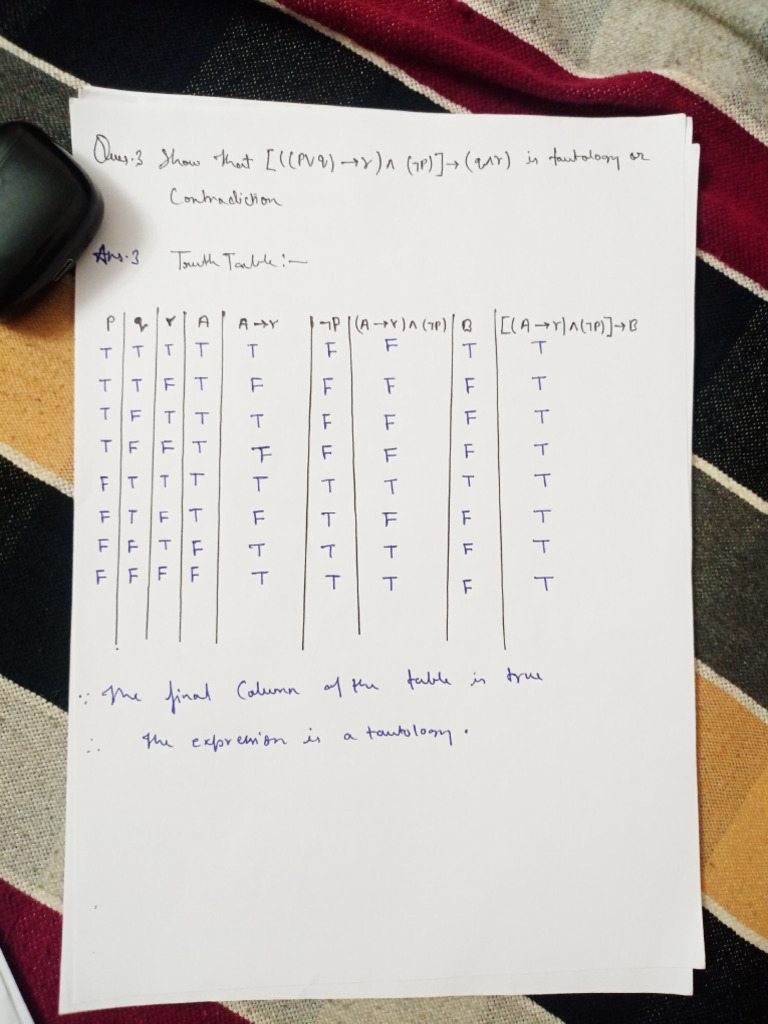 Ques.3 Show that [((P∨q) →r)∧ (¬P)]→(q∧r) is tautology or
Contradiction
Ans.3 Truth Table:-
P q r A A→r ¬P (A→r)∧(¬P) B [(A→r)∧(¬P)]→B
T T T T T F F T T
T T F T F F F F T
T F T T T F F F T
T F F T F F F F T
F T T T T T T T T
F T F T F T F F T
F F T F T T T F T
F F F F T T T F T
∵ The final Column of the table is true
∴ the expression is a tautology.